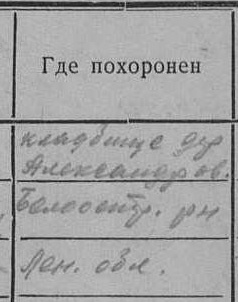 Где похоронен
кладбище дер
Александров.
Белоостр. рн
Лен. обл.